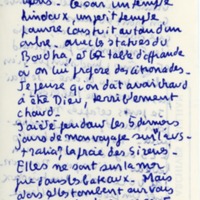 après le soir un temple
hindou, un petit temple
pauvre construit autour d'un
arbre. avec les statues du
Boudha, et la table d'offrande
où on lui propose des citronades.
Je pense qu'on doit avoir chaud
à être Dieu, terriblement
chaud.
J'ai été pendant les 5 derniers
jours de mon voyage sur l'Aus-
tralia, la proie des sirènes.
Elles ne sont sur la mer
que sous les bateaux. Mais
alors elles tombent sur vous